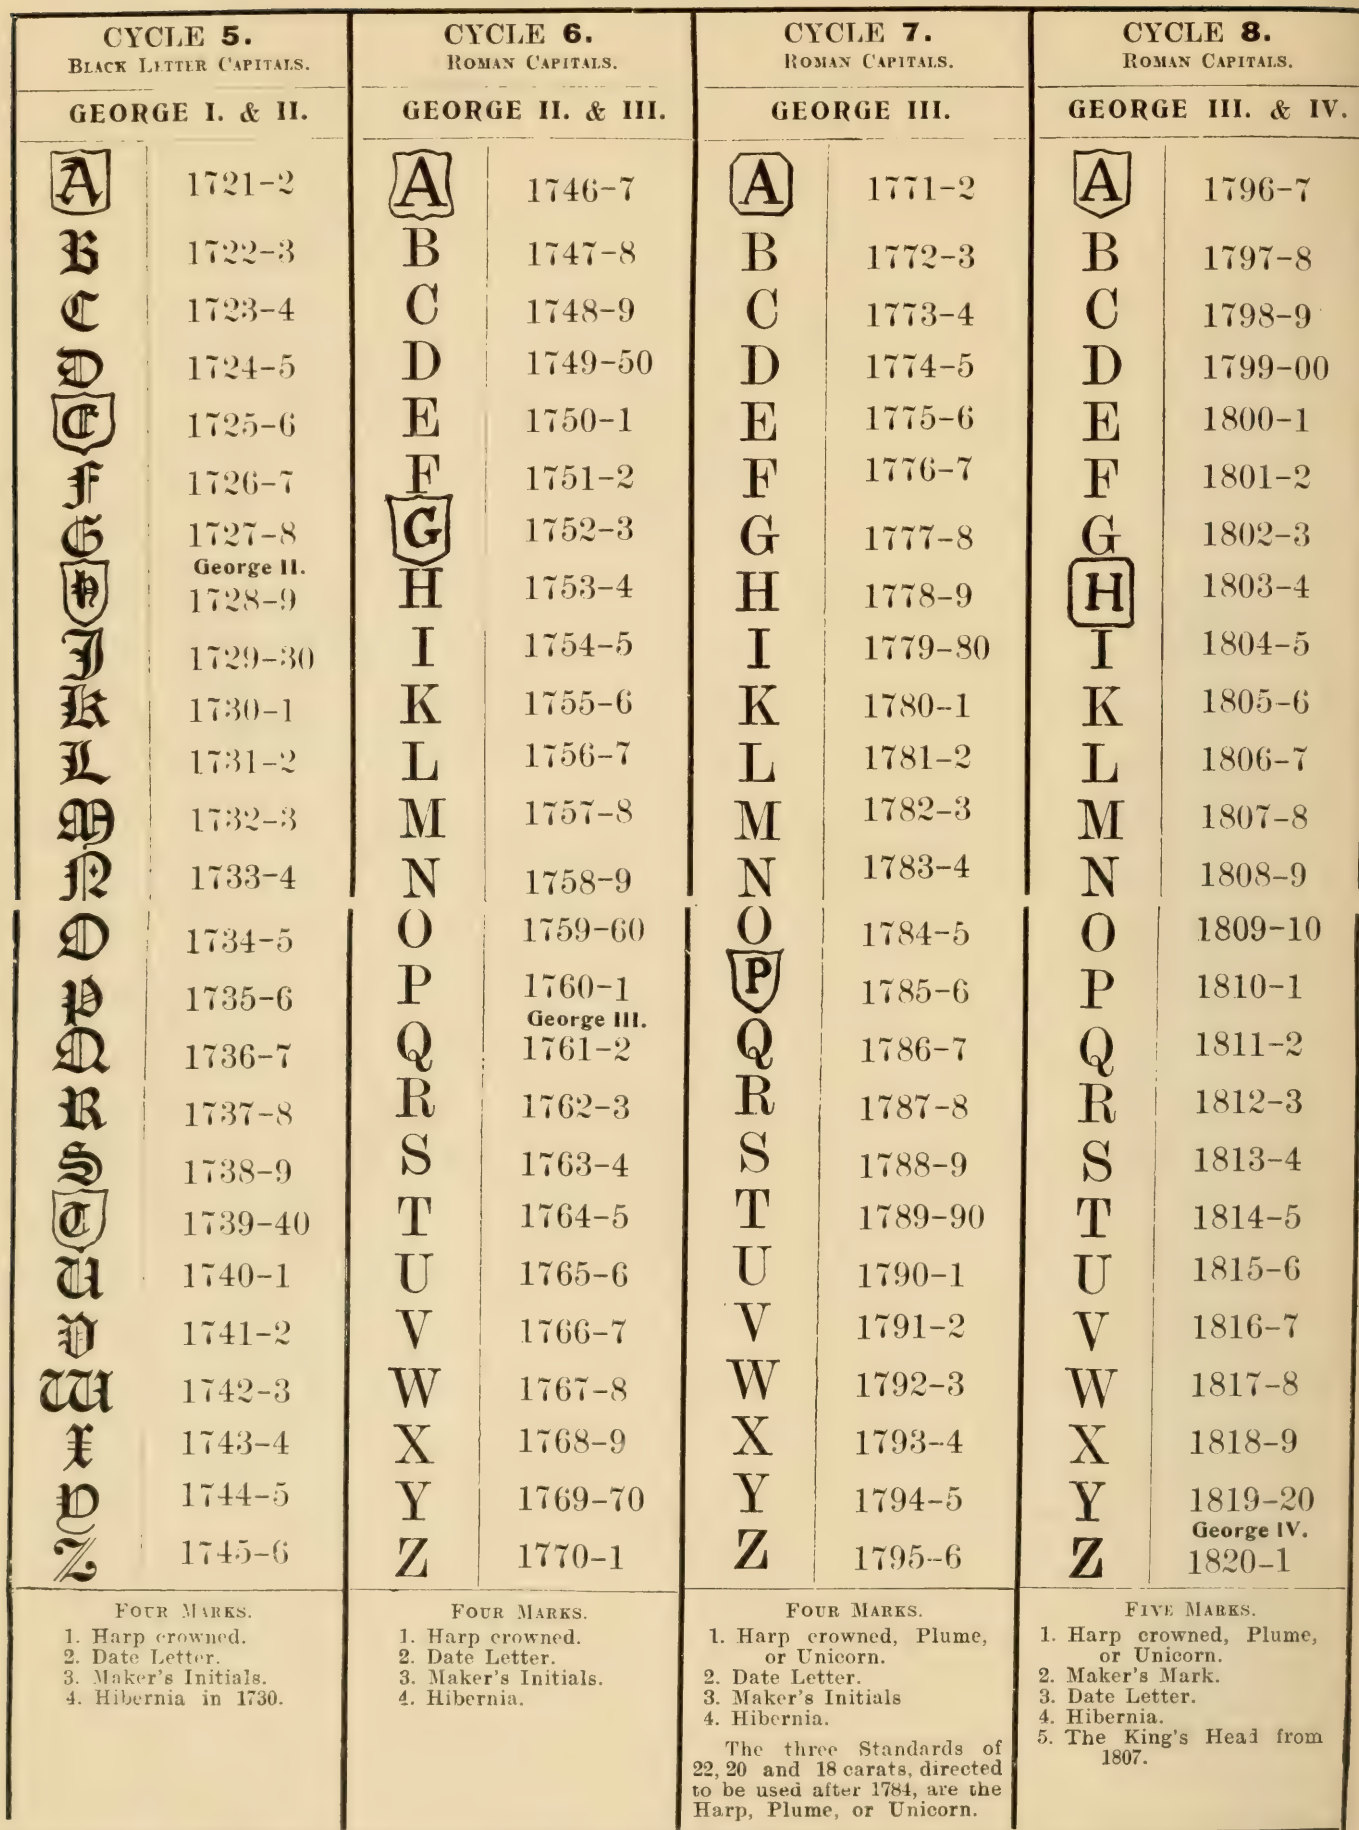 CYCLE 5.
BLACK LETTER CAPITALS.
GEORGE I. & II.
A 1721-2
B 1722-3
C 1723-4
D 1724-5
E 1725-6
F 1726-7
G 1727-8
George II.
H 1728-9
J 1729-30
K 1730-1
L 1731-2
M 1732-3
N 1733-4
O 1734-5
P 1735-6
Q 1736-7
R 1737-8
S 1738-9
T 1739-40
U 1740-1
V 1741-2
W 1742-3
X 1743-4
Y 1744-5
Z 1745-6
FOUR MARKS.
1. Harp crowned.
2. Date Letter.
3. Maker's Initials.
4. Hibernia in 1730.
CYCLE 6.
ROMAN CAPITALS.
GEORGE II. & III.
A 1746-7
B 1747-8
C 1748-9
D 1749-50
E 1750-1
F 1751-2
G 1752-3
H 1753-4
I 1754-5
K 1755-6
L 1756-7
M 1757-8
N 1758-9
O 1759-60
P 1760-1
George III.
Q 1761-2
R 1762-3
S 1763-4
T 1764-5
U 1765-6
V 1766-7
W 1767-8
X 1768-9
Y 1769-70
Z 1770-1
FOUR MARKS.
1. Harp crowned.
2. Date Letter.
3. Maker's Initials.
4. Hibernia.
CYCLE 7.
ROMAN CAPITALS.
GEORGE III.
A 1771-2
B 1772-3
C 1773-4
D 1774-5
E 1775-6
F 1776-7
G 1777-8
H 1778-9
I 1779-80
K 1780-1
L 1781-2
M 1782-3
N 1783-4
O 1784-5
P 1785-6
Q 1786-7
R 1787-8
S 1788-9
T 1789-90
U 1790-1
V 1791-2
W 1792-3
X 1793-4
Y 1794-5
Z 1795-6
FOUR MARKS.
1. Harp crowned, Plume,
or Unicorn.
2. Date Letter.
3. Maker's Initials
4. Hibernia.
The three Standards of
22, 20 and 18 carats, directed
to be used after 1784, are the
Harp, Plume, or Unicorn.
CYCLE 8.
ROMAN CAPITALS.
GEORGE III. & IV.
A 1796-7
B 1797-8
C 1798-9
D 1799-00
E 1800-1
F 1801-2
G 1802-3
H 1803-4
I 1804-5
K 1805-6
L 1806-7
M 1807-8
N 1808-9
O 1809-10
P 1810-1
Q 1811-2
R 1812-3
S 1813-4
T 1814-5
U 1815-6
V 1816-7
W 1817-8
X 1818-9
Y 1819-20
George IV.
Z 1820-1
FIVE MARKS.
1. Harp crowned, Plume,
or Unicorn.
2. Maker's Mark.
3. Date Letter.
4. Hibernia.
5. The King's Head from
1807.